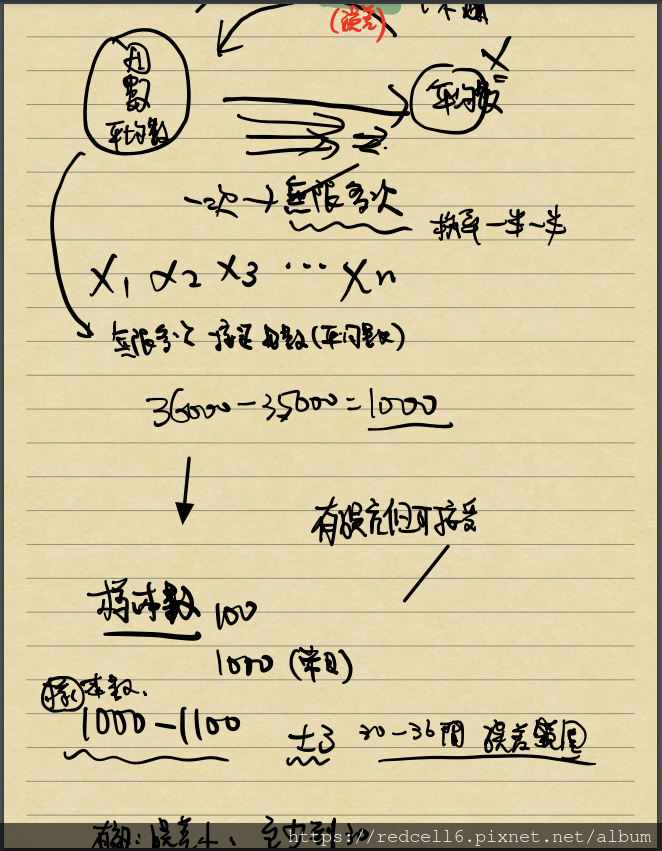 (誤差)
母
數
平均數
平均數 X
一次→無限多次
擲骰一半一半
X1 X2 X3 ... Xn
無限多次 接近母數(平均數)
36000-35000=1000
有誤差但可接受
樣本數 100
1000 (常見)
樣本數.
1000-1100
±3 30-36間 誤差範圍
https://redcell6.pixnet.net/album